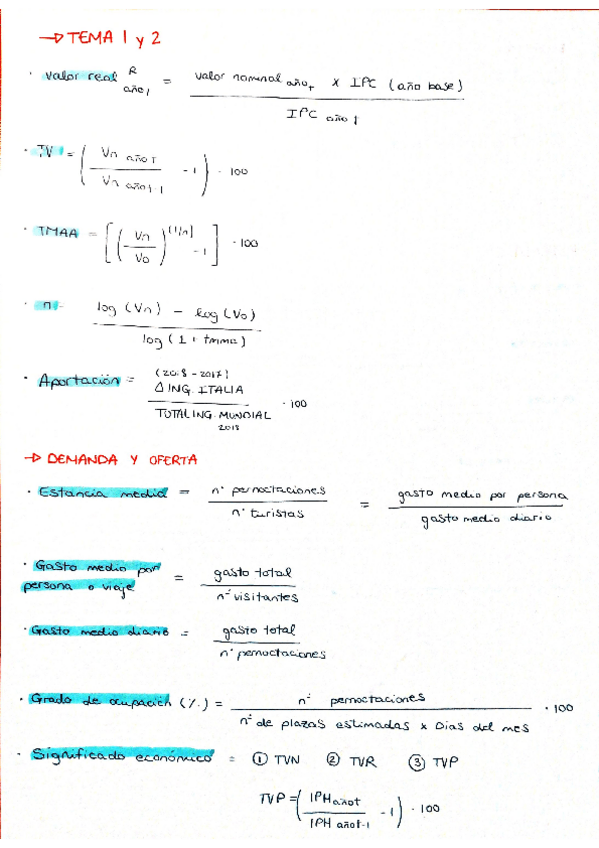 → TEMA 1 y 2
· Valor real R año t = valor nominal año t x IPC (año base)
IPC año t
· TV = ( Vn año T / Vn año t-1 - 1 ) · 100
· TMAA = [ ( Vn / Vo )^(1/n) - 1 ] · 100
· n = log (Vn) - log (Vo)
log (1 + tmma)
· Aportación = (2018 - 2017)
Δ ING. ITALIA
TOTAL ING. MUNDIAL · 100
2018
→ DEMANDA Y OFERTA
· Estancia media = nº pernoctaciones / nº turistas = gasto medio por persona / gasto medio diario
· Gasto medio por
persona o viaje = gasto total / nº visitantes
· Gasto medio diario = gasto total / nº pernoctaciones
· Grado de ocupación (%) = nº pernoctaciones · 100
nº de plazas estimadas x Dias del mes
· Significado económico = ① TVN ② TVR ③ TVP
TVP = ( IPH año t / IPH año t-1 - 1 ) · 100